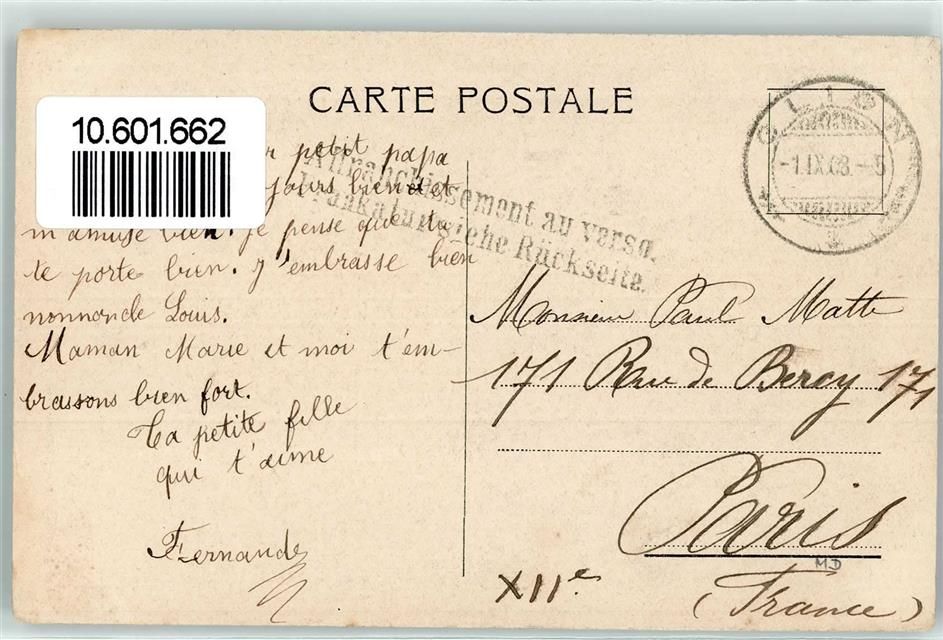 CARTE POSTALE
10.601.662
petit papa
jours bien et
m'amuse bien. je pense que tu
te porte bien. J'embrasse bien
nonnancle Louis.
Maman Marie et moi t'em-
brassons bien fort.
Ta petite fille
qui t'aime
Fernande
Affranchissement au verso.
Frankatur siehe Rückseite.
-1.IX.08.-5
Monsieur Paul Matte
171 Rue de Bercy 171
Paris
MD
XIIe
(France)